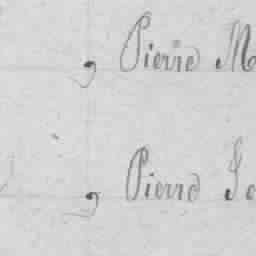 , Pierre M
, Pierre Jo